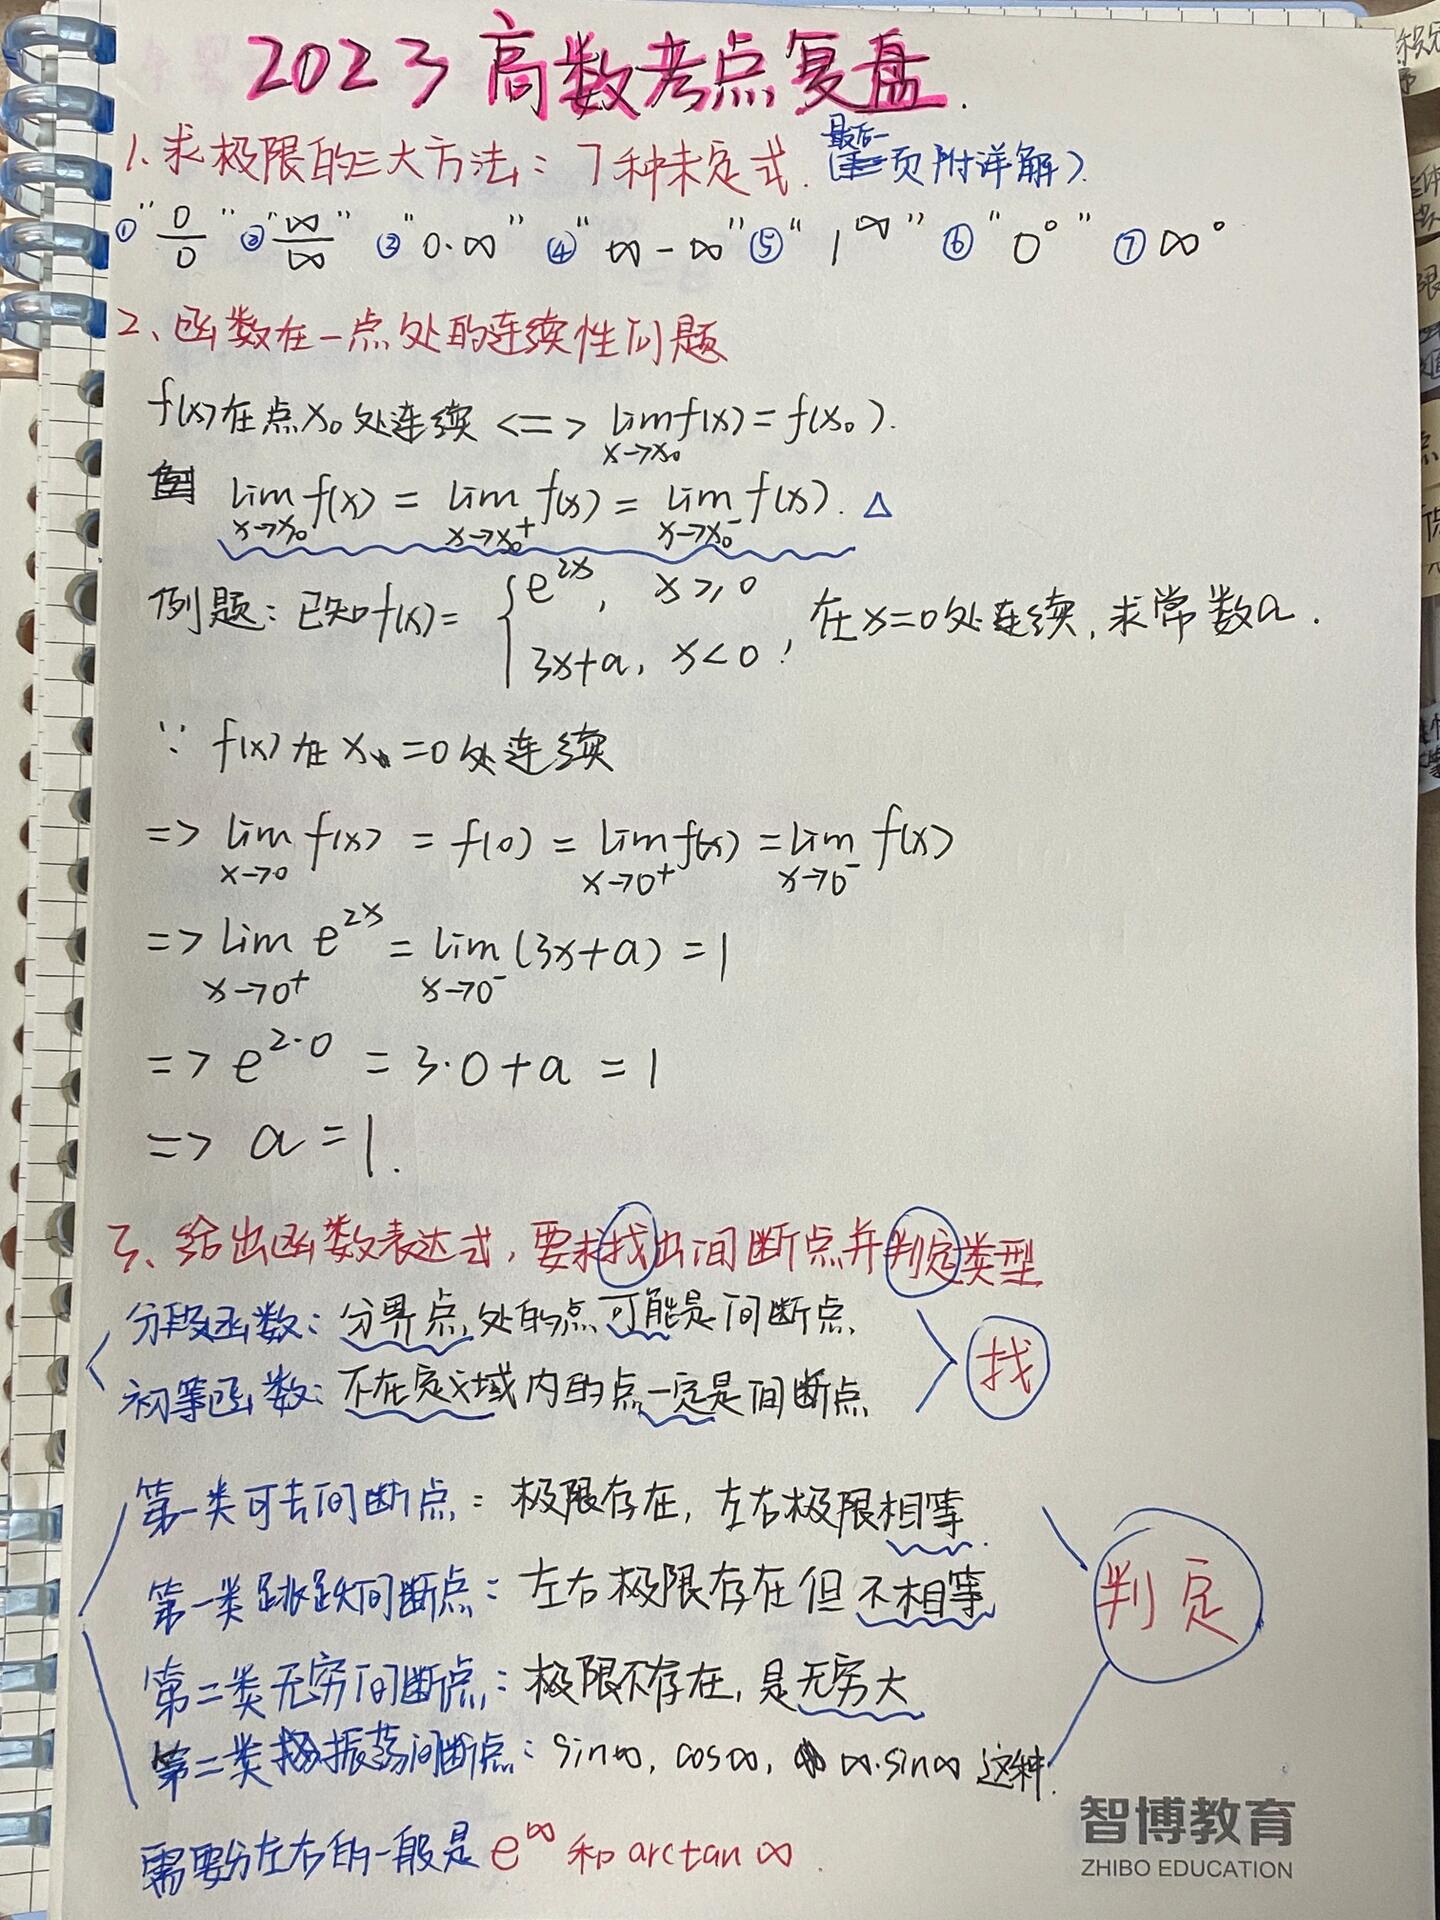 2023高数考点复盘.
1.求极限的三大方法:7种未定式.(最后一页附详解)
①"0/0" ②"∞/∞" ③"0·∞" ④"∞-∞" ⑤"1^∞" ⑥"0⁰" ⑦∞⁰
2、函数在一点处的连续性问题
f(x)在点x₀处连续 <=> lim x→x₀ f(x)=f(x₀).
lim x→x₀ f(x) = lim x→x₀⁺ f(x) = lim x→x₀⁻ f(x). △
例题:已知f(x)= { e^2x, x≥0 ; 3x+a, x<0, 在x=0处连续,求常数a.
∵ f(x)在x=0处连续
=> lim x→0 f(x) = f(0) = lim x→0⁺ f(x) = lim x→0⁻ f(x)
=> lim x→0⁺ e^2x = lim x→0⁻ (3x+a) = 1
=> e^2·0 = 3·0+a = 1
=> a=1.
3、给出函数表达式,要求找出间断点并判定类型
分段函数:分界点处的点可能是间断点.
初等函数:不在定义域内的点一定是间断点
找
第一类可去间断点:极限存在,左右极限相等.
第一类跳跃间断点:左右极限存在但不相等
判定
第二类无穷间断点:极限不存在,是无穷大
第二类振荡间断点:sin∞, cos∞, ∞·sin∞这种.
需要分左右的一般是e^∞和arctan∞.
智博教育
ZHIBO EDUCATION